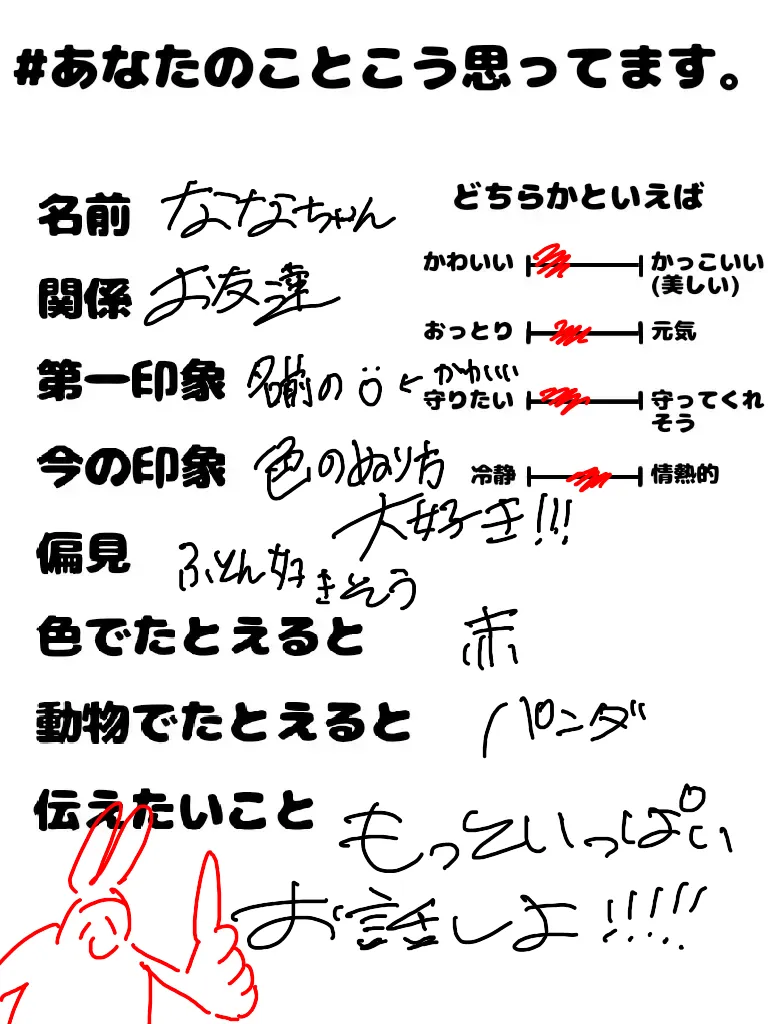 #あなたのことこう思ってます。
名前 ななちゃん
関係 お友達
第一印象 名前の ö ← かわいい
今の印象 色のぬり方
大好き!!!
偏見 ふとん好きそう
色でたとえると 赤
動物でたとえると パンダ
伝えたいこと もっといっぱい
お話しよ!!!!!
どちらかといえば
かわいい かっこいい
(美しい)
おっとり 元気
守りたい 守ってくれ
そう
冷静 情熱的